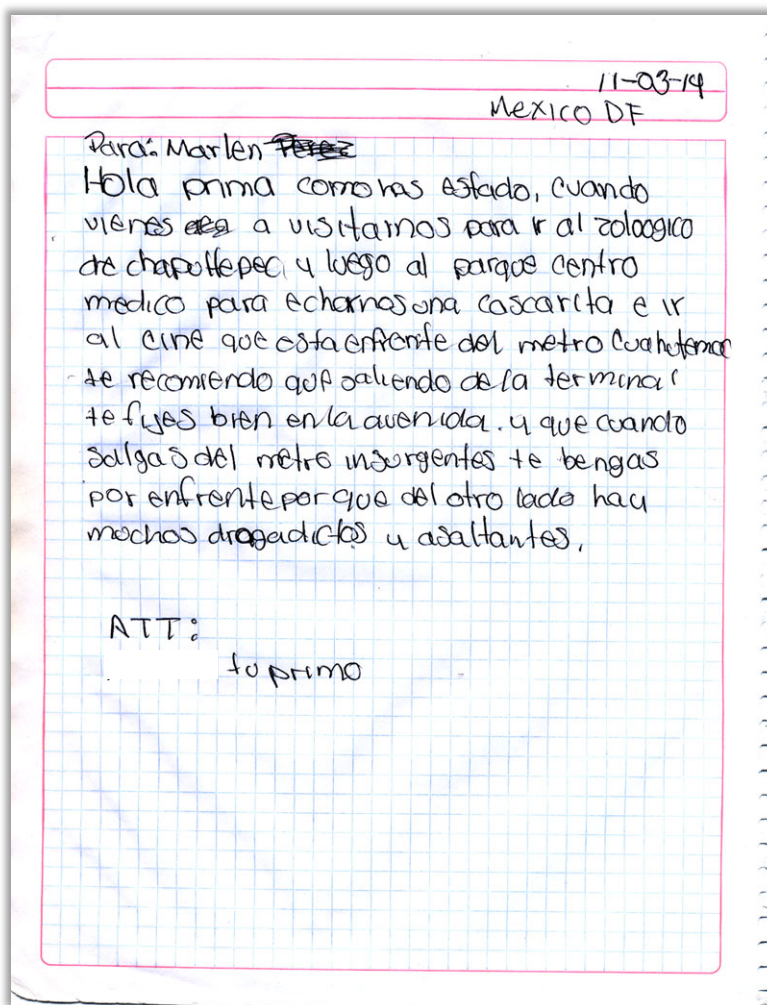 11-03-14
Mexico DF
Para: Marlen
Hola prima como has estado, cuando
vienes a visitarnos para ir al zoloogico
de chapoltepec, y luego al parque centro
medico para echarnos una cascarita e ir
al cine que esta enfrente del metro Cuahutemoc
te recomiendo que saliendo de la terminal
te fijes bien en la avenida. y que cuando
salgas del metro insurgentes te bengas
por enfrente por que del otro lado hay
muchos drogadictos y asaltantes.
ATT:
tu primo